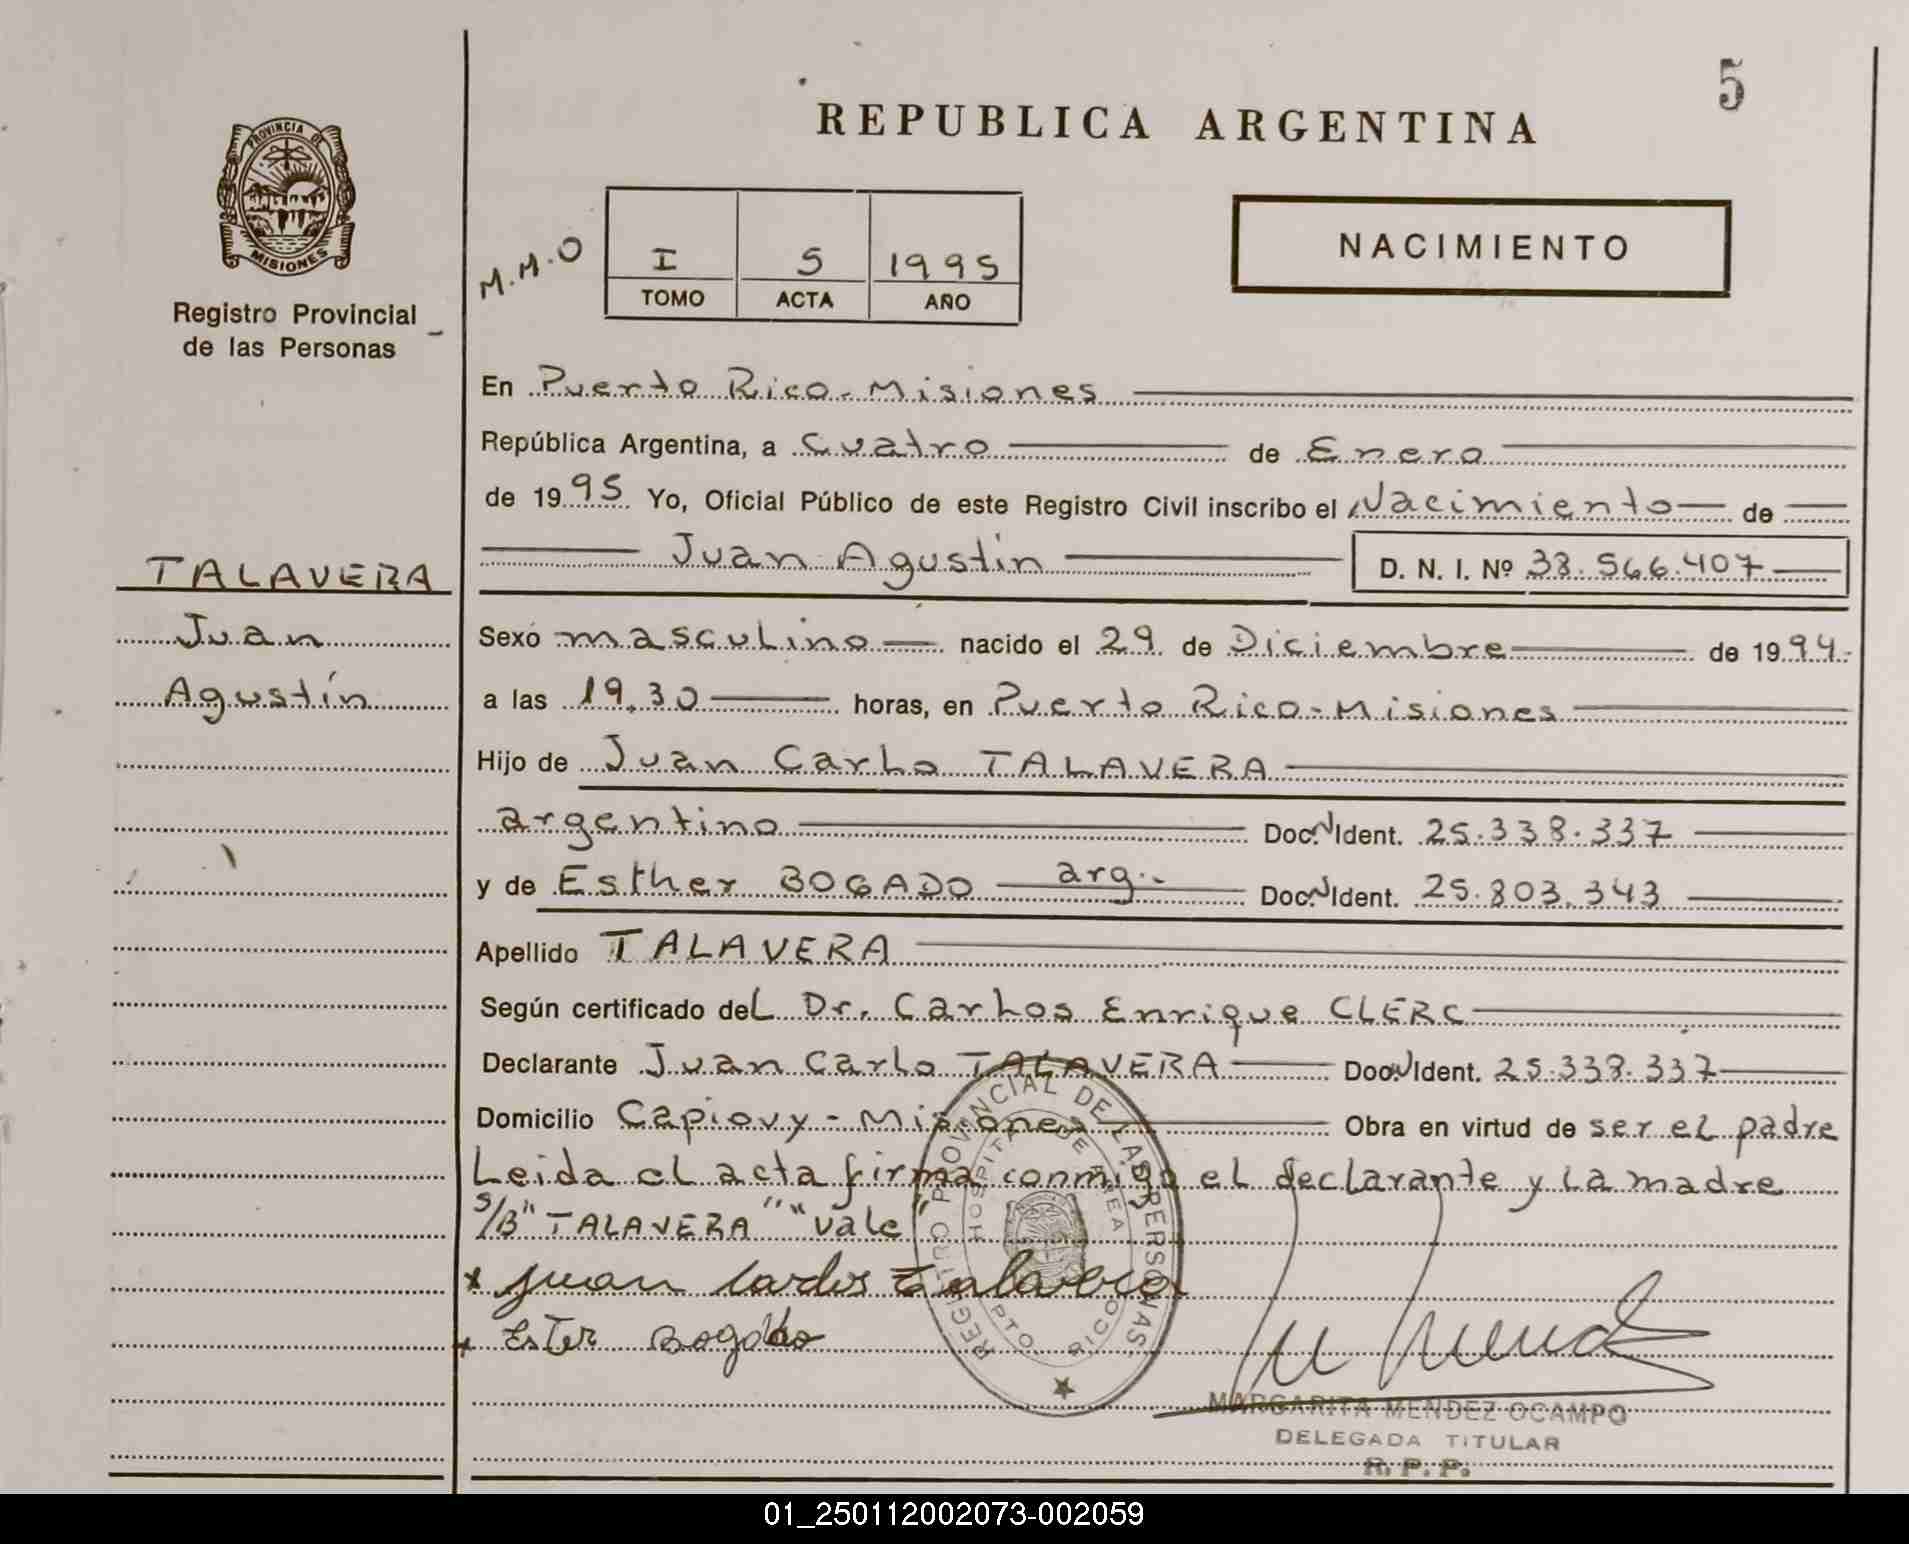 5
REPUBLICA ARGENTINA
PROVINCIA DE
MISIONES
Registro Provincial
de las Personas
M.M.O
I S 1995
TOMO ACTA AÑO
NACIMIENTO
En Puerto Rico - Misiones
República Argentina, a Cuatro de Enero
de 1995 Yo, Oficial Público de este Registro Civil inscribo el Nacimiento de
Juan Agustín D. N. I. Nº 38.566.407
TALAVERA
Juan
Agustín
Sexo masculino nacido el 29 de Diciembre de 1994
a las 19.30 horas, en Puerto Rico - Misiones
Hijo de Juan Carlo TALAVERA
argentino Doc. N Ident. 25.338.337
y de Esther BOGADO arg. Doc. N Ident. 25.803.343
Apellido TALAVERA
Según certificado del Dr. Carlos Enrique CLERC
Declarante Juan Carlo TALAVERA Doc. N Ident. 25.338.337
Domicilio Capiovy - Misiones Obra en virtud de ser el padre
Leida el acta firma conmigo el declarante y la madre
S/B "TALAVERA" "vale"
x Juan Carlos Talavera
x Ester Bogado
REGISTRO PROVINCIAL DE LAS PERSONAS
HOSPITAL DE AREA
PTO. RICO
M Mendez
MARGARITA MENDEZ OCAMPO
DELEGADA TITULAR
R. P. P.
01_250112002073-002059